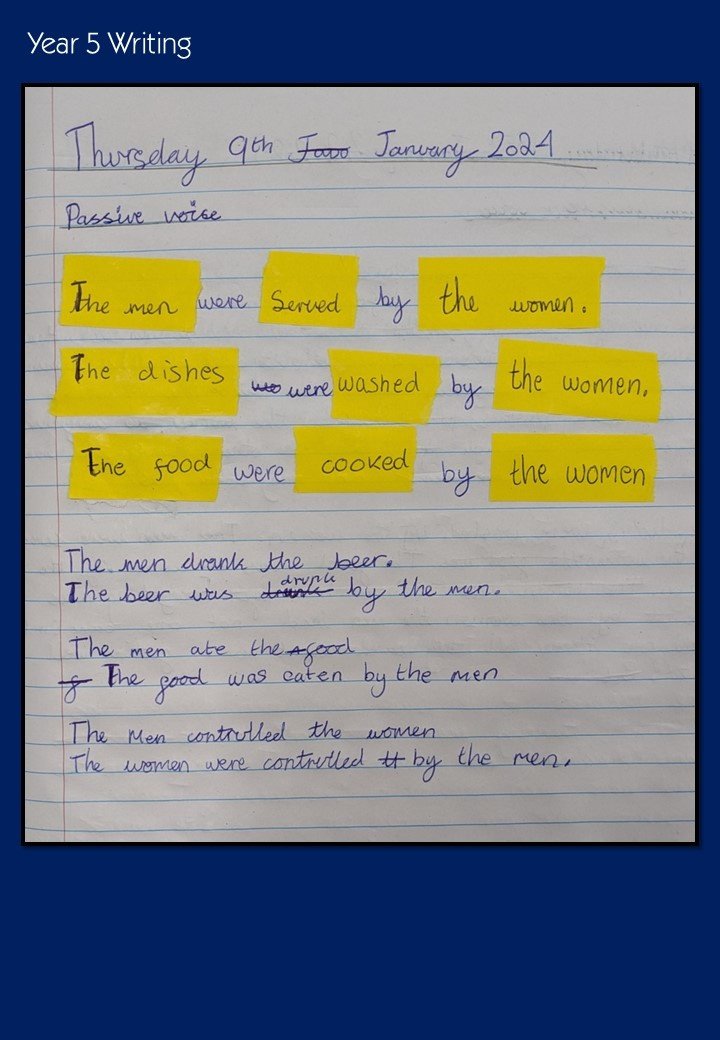 Year 5 Writing
Thursday 9th Javo January 2024
Passive voice
The men were Served by the women.
The dishes we were washed by the women.
The food were cooked by the women
The men drank the beer.
The beer was drank drunk by the men.
The men ate the food
f The food was eaten by the men
The Men controlled the women
The women were controlled tt by the men.